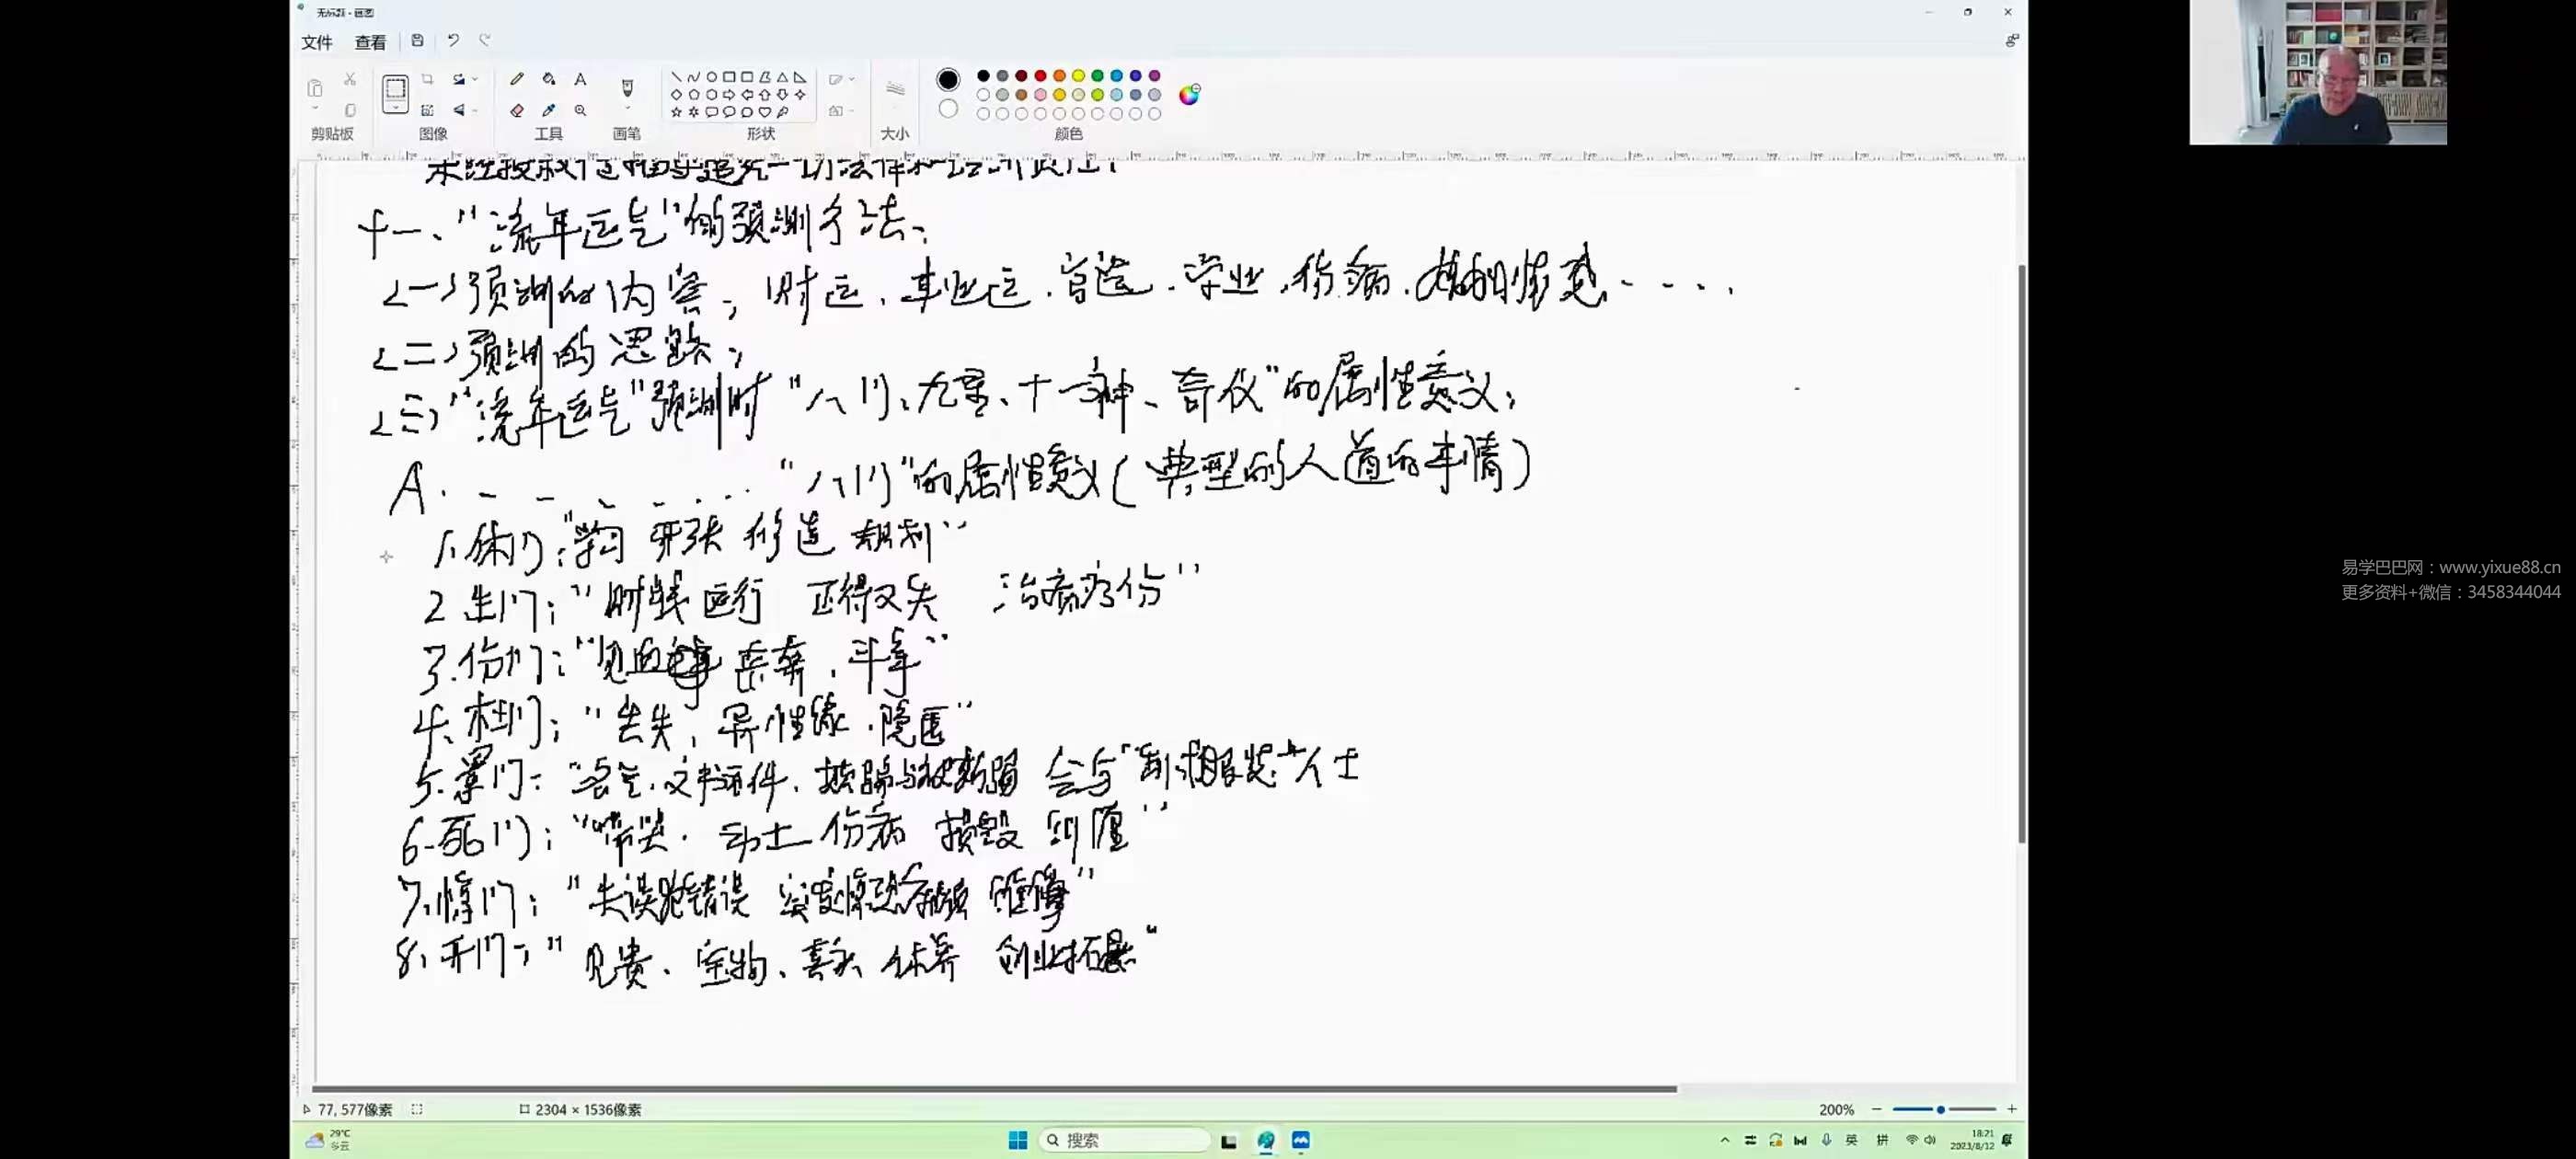 无标题 - 画图
文件 查看
剪贴板 图像 工具 画笔 形状 大小 颜色
十一、"流年运气"的预测方法、
<一>预测的内容; 财运、事业运、官运、学业、伤病、婚姻情感.....
<二>预测的思路;
<三>"流年运气"预测时"八门、九星、十一神、奇仪"的属性意义;
A. "八门"的属性意义(典型的人道的事情)
1、休门:"学习 开张 修造 规划"
2 生门:"财钱运行 正得又失 治病疗伤"
3.伤门:"见血 丢弃、斗争"
4、杜门:"丢失、异性缘、隐匿"
5.景门: 文书证件、 会与"制式服装"人士
6.死门:"带哭、动土 伤病 损毁 到 "
7.惊门:"失误犯错误 突变惊恐 "
8.开门:"见贵、宝物、喜头 休养 创业拓展"
易学巴巴网:www.yixue88.cn
更多资料+微信:3458344044
77, 577像素 2304 × 1536像素 200%
29°C
多云
搜索
英 拼
18:21
2023/8/12